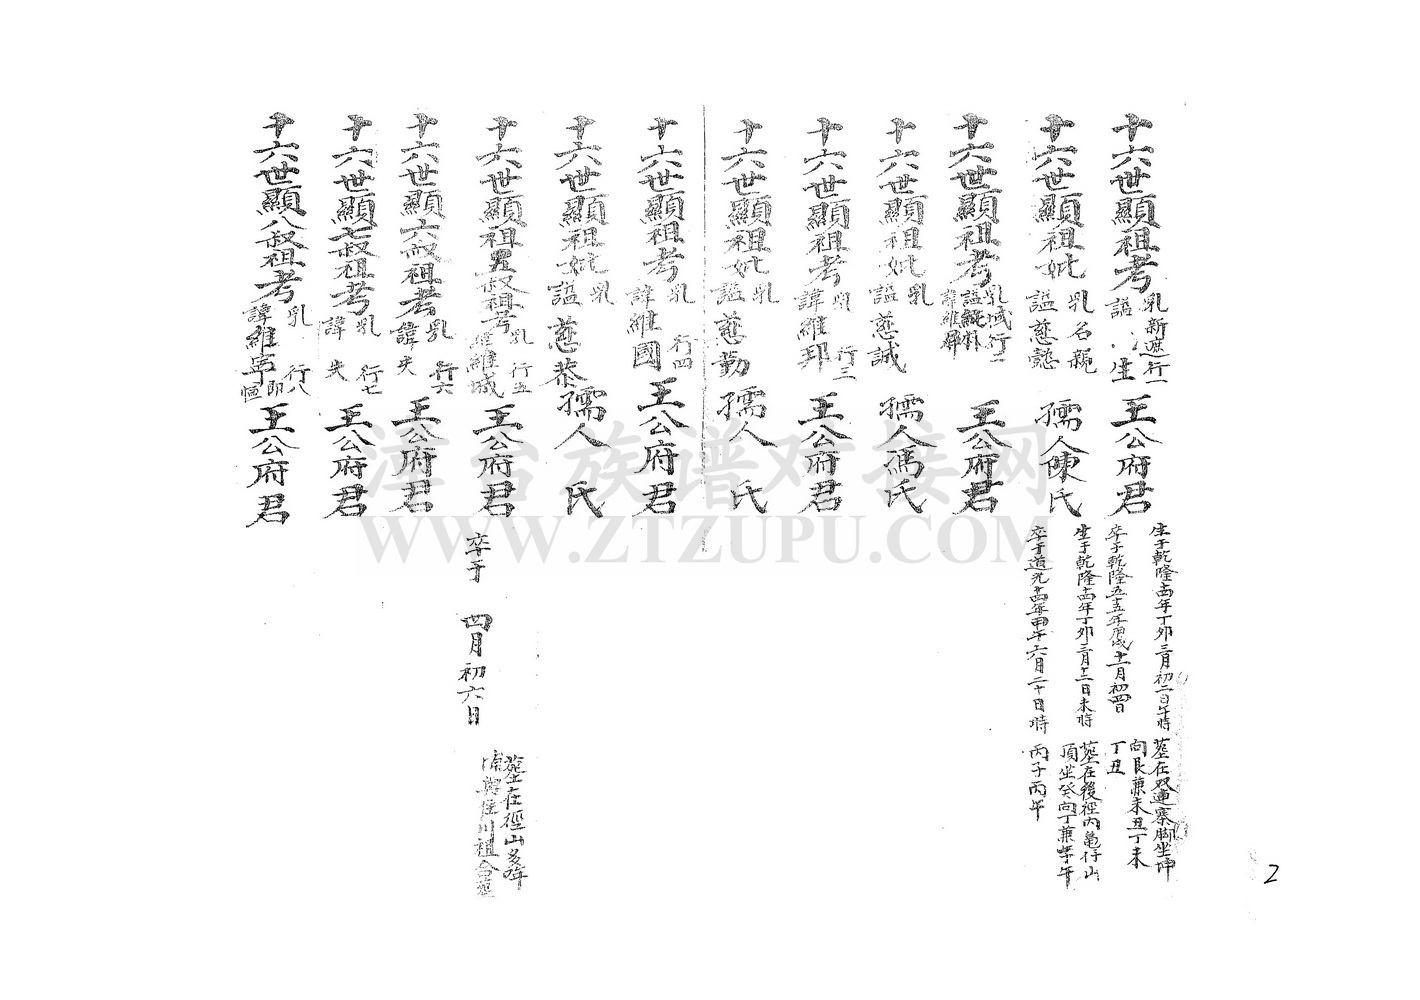 十六世顯祖考乳新遮行一謚 生王公府君
生于乾隆十二年丁卯三月初二日午時
卒于乾隆五五年庚戌十一月初四日
墓在双連寨腳坐坤
向艮兼未丑丁未
丁丑
十六世顯祖妣乳名親謚慈懿孺人陳氏
生于乾隆十二年丁卯三月十三日未時
卒于道光十四年甲午六月二十日 時
墓在後徑內亀仔山
頂坐癸向丁兼子午
丙子丙午
十六世顯祖考乳城行二謚純朴諱維屏王公府君
十六世顯祖妣乳 謚慈誠孺人馮氏
十六世顯祖考乳 行三諱維邦王公府君
十六世顯祖妣乳 謚慈勤孺人 氏
十六世顯祖考乳 行四諱維國王公府君
十六世顯祖妣乳 謚慈恭孺人 氏
十六世顯祖五叔祖考乳 行五諱維城王公府君
卒于 四月初六日
墓在徑山
祖合墓
十六世顯六叔祖考乳 行六諱失王公府君
十六世顯七叔祖考乳 行七諱失王公府君
十六世顯八叔祖考乳 行八諱維寧即恒王公府君
漳台族谱对接网
WWW.ZTZUPU.COM
2